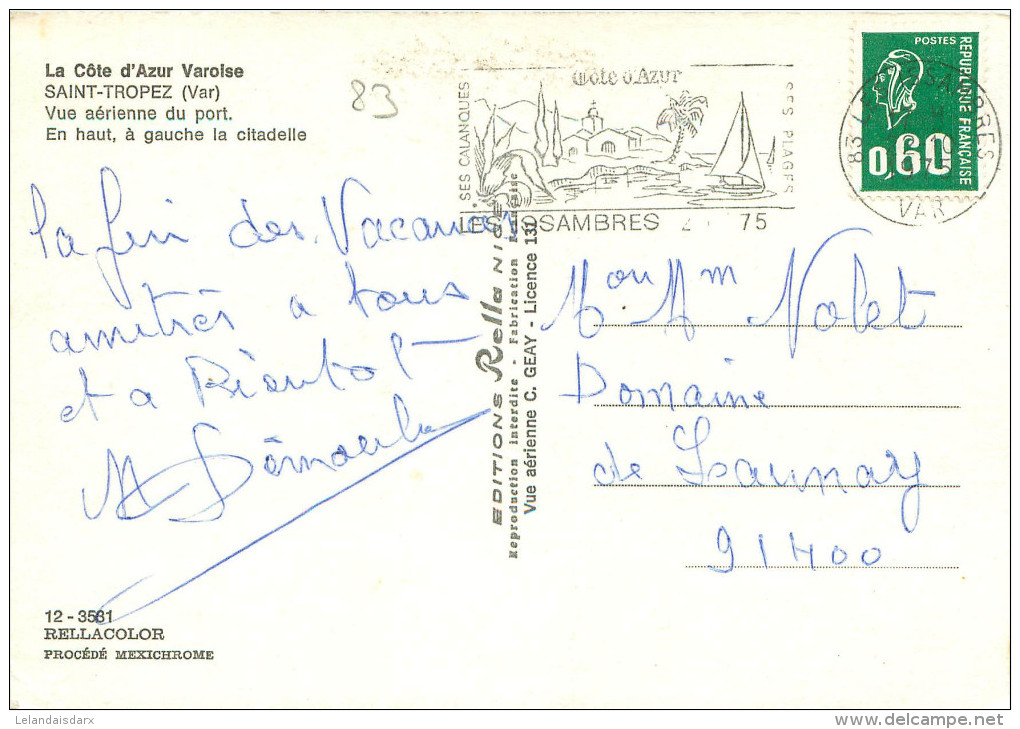 La Côte d'Azur Varoise
SAINT-TROPEZ (Var)
Vue aérienne du port.
En haut, à gauche la citadelle
83
Côte d'Azur
SES CALANQUES
SES PLAGES
LES ISSAMBRES 2 75
POSTES
REPUBLIQUE FRANÇAISE
0,60
83 VAR
la fin des Vacances
amitiés a tous
et a Bientot
M
EDITIONS Rella NICE
Reproduction interdite - Fabrication Française
Vue aérienne C. GEAY - Licence 137
M on M m Volet
Domaine
de Launay
91400
12 - 3581
RELLACOLOR
PROCÉDÉ MEXICHROME
Lelandaisdarx
www.delcampe.net